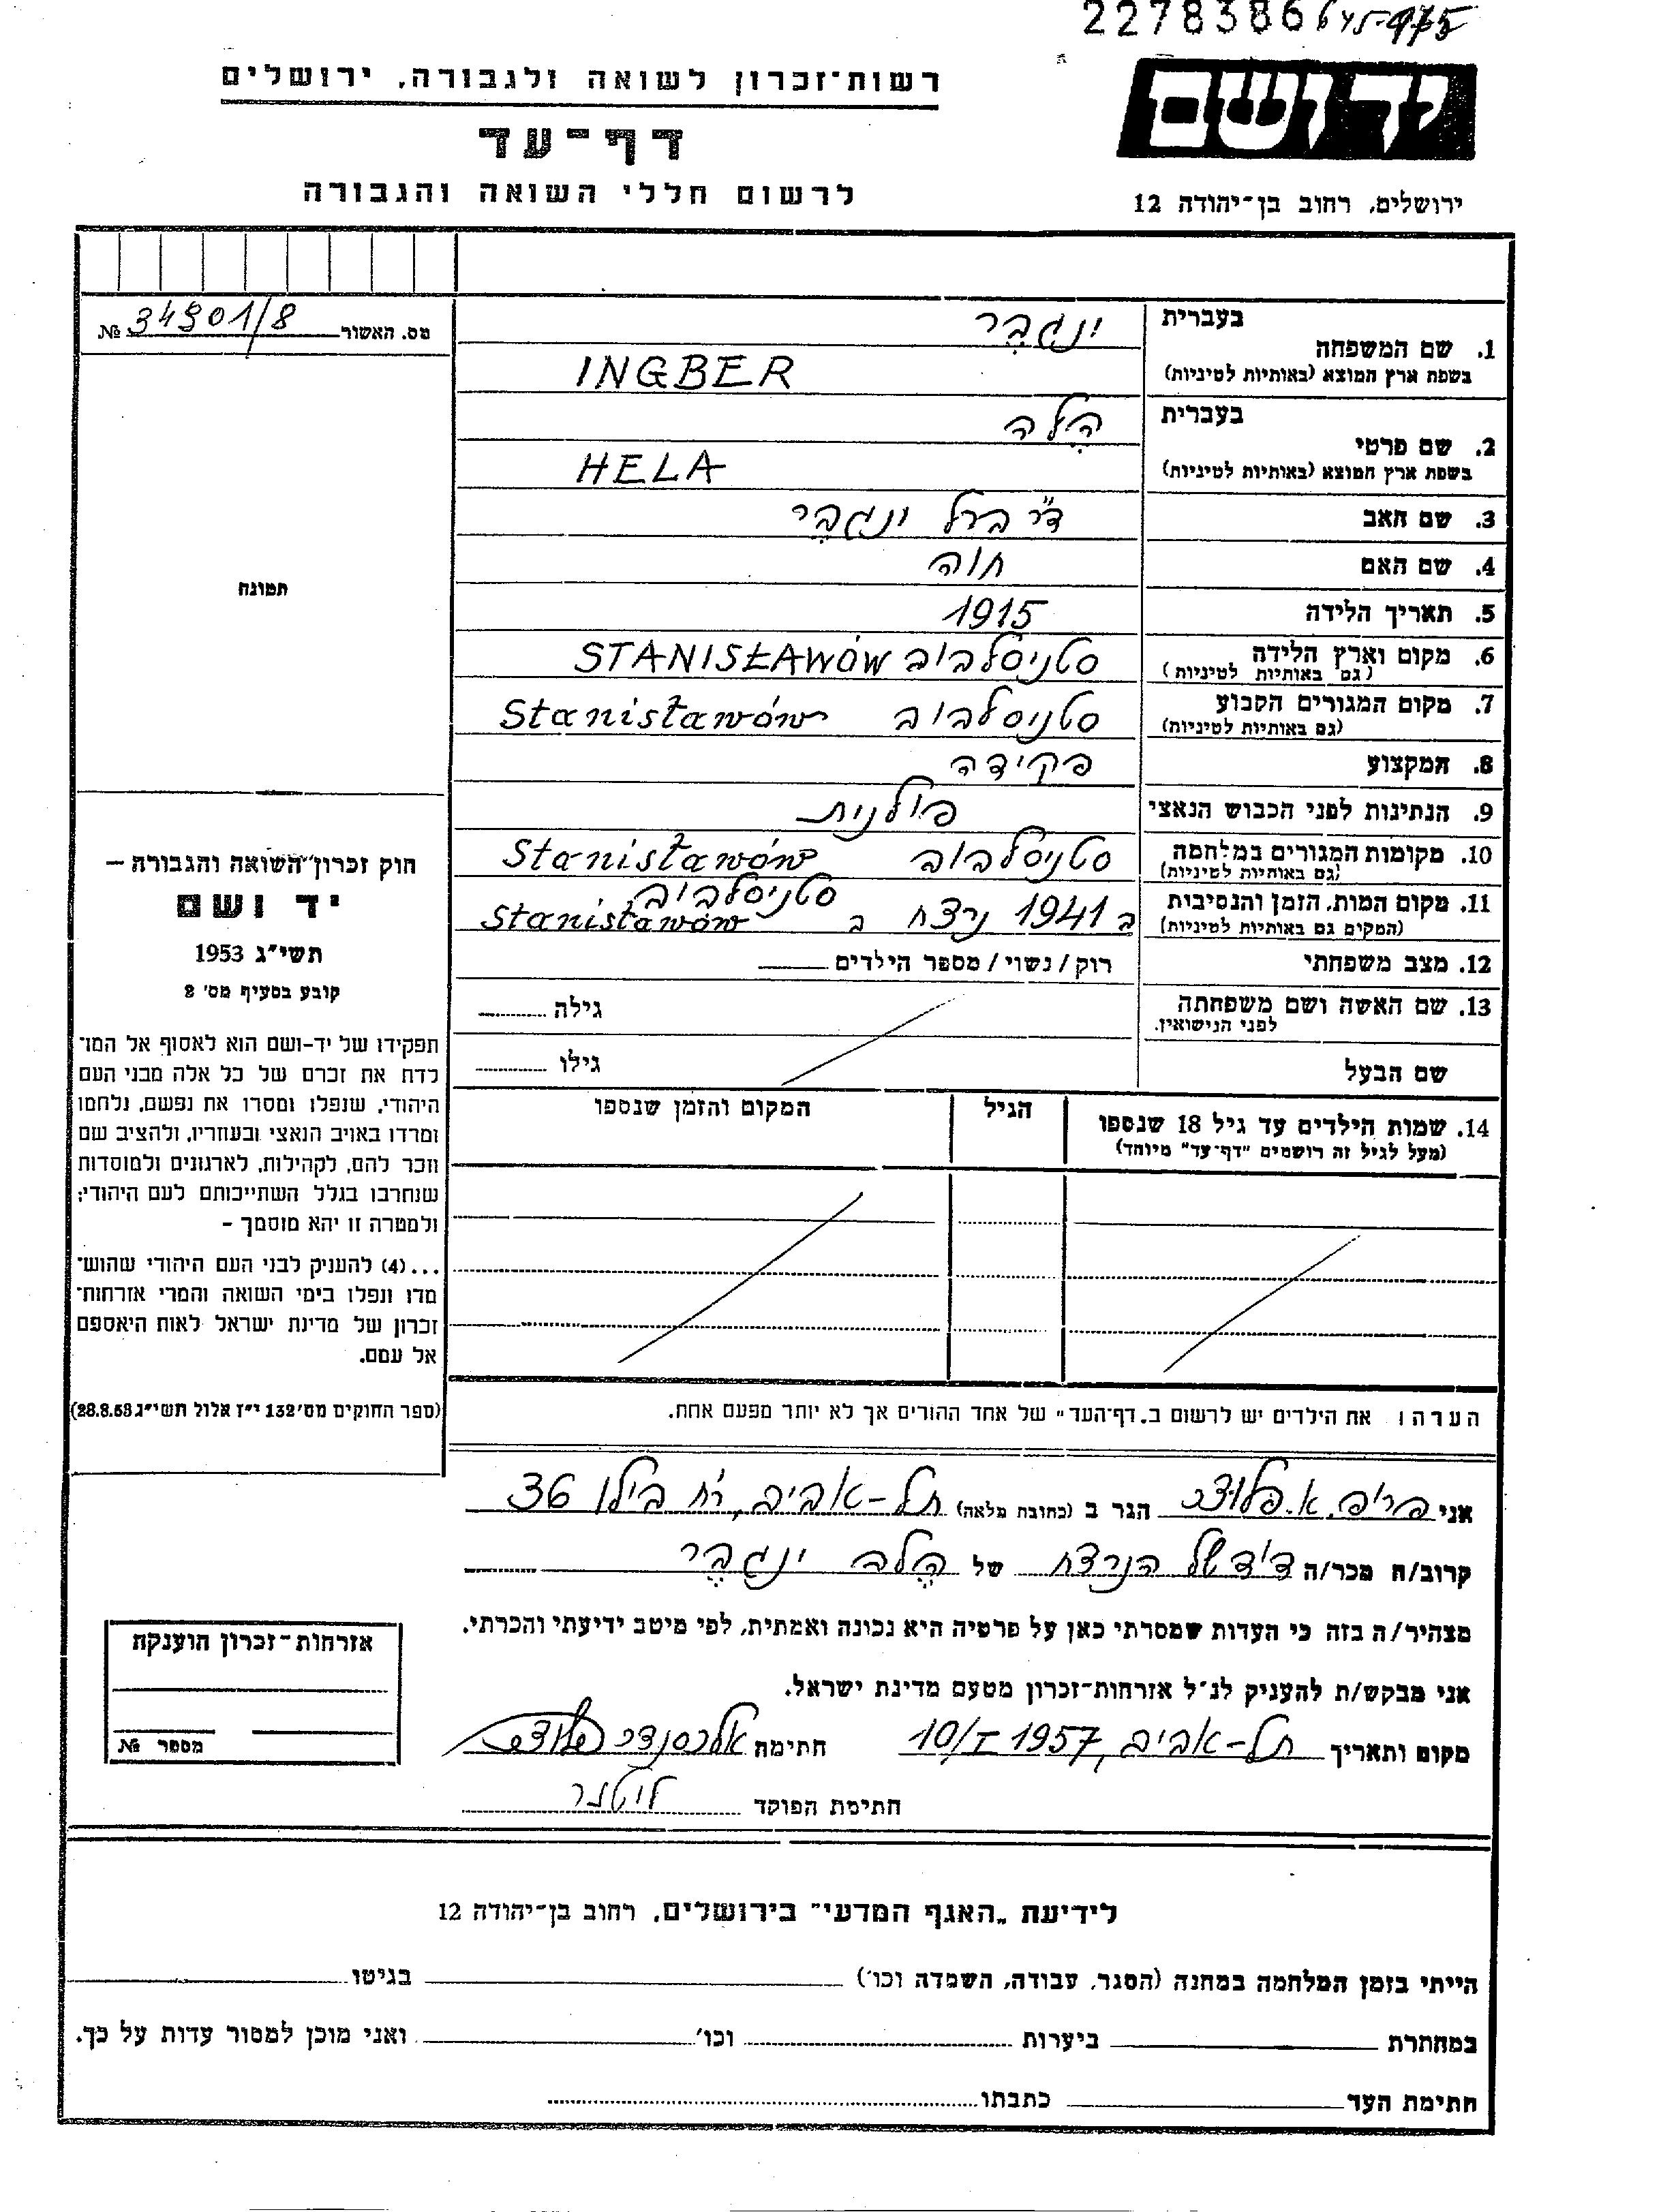 2278386 645-975
יד ושם
רשות־זכרון לשואה ולגבורה, ירושלים
דף־עד
לרשום חללי השואה והגבורה
ירושלים, רחוב בן־יהודה 12
מס. האשור 34901/8 №
1. שם המשפחה
בעברית יִנגבֶּר
בשפת ארץ המוצא (באותיות לטיניות) INGBER
2. שם פרטי
בעברית הֶלה
בשפת ארץ המוצא (באותיות לטיניות) HELA
3. שם האב ד״ר ברל ינגבֶּר
4. שם האם חוה
5. תאריך הלידה 1915
6. מקום וארץ הלידה סטניסלבוב STANISŁAWÓW
(גם באותיות לטיניות)
7. מקום המגורים הקבוע סטניסלבוב Stanisławów
(גם באותיות לטיניות)
8. המקצוע פקידה
9. הנתינות לפני הכבוש הנאצי פולנית
10. מקומות המגורים במלחמה סטניסלבוב Stanisławów
(גם באותיות לטיניות)
11. מקום המות, הזמן והנסיבות ב 1941 נרצח ב סטניסלבוב Stanisławów
(המקים גם באותיות לטיניות)
12. מצב משפחתי רוק / נשוי / מספר הילדים
13. שם האשה ושם משפחתה גילה
לפני הנישואין.
שם הבעל גילו
14. שמות הילדים עד גיל 18 שנספו הגיל המקום והזמן שנספו
(מעל לגיל זה רושמים "דף־עד" מיוחד)
תמונה
חוק זכרון־השואה והגבורה –
יד ושם
תשי״ג 1953
קובע בסעיף מס׳ 2
תפקידו של יד-ושם הוא לאסוף אל המו־
לדת את זכרם של כל אלה מבני העם
היהודי, שנפלו ומסרו את נפשם, נלחמו
ומרדו באויב הנאצי ובעוזריו, ולהציב שם
וזכר להם, לקהילות, לארגונים ולמוסדות
שנחרבו בגלל השתייכותם לעם היהודי;
ולמטרה זו יהא מוסמך –
...(4) להעניק לבני העם היהודי שהוש־
מדו ונפלו בימי השואה והמרי אזרחות־
זכרון של מדינת ישראל לאות היאספם
אל עמם.
(ספר החוקים מס׳ 132 י״ז אלול תשי״ג 28.8.53)
הערה: את הילדים יש לרשום ב„דף־העד" של אחד ההורים אך לא יותר מפעם אחת.
אני פרופ. א. הגר ב (כתובת מלאה) תל-אביב, רח׳ בילו 36
קרוב/ה מכר/ה דוד של הנרצח של הֶלה ינגבֶּר
מצהיר/ה בזה כי העדות שמסרתי כאן על פרטיה היא נכונה ואמתית, לפי מיטב ידיעתי והכרתי.
אני מבקש/ת להעניק לנ״ל אזרחות־זכרון מטעם מדינת ישראל.
מקום ותאריך תל-אביב, 10/I 1957 חתימה
חתימת הפוקד ליטנר
אזרחות־זכרון הוענקה
מספר №
לידיעת „האגף המדעי" בירושלים, רחוב בן־יהודה 12
הייתי בזמן המלחמה במחנה (הסגר, עבודה, השמדה וכו׳) בגיטו
במחתרת ביערות וכו׳ ואני מוכן למסור עדות על כך.
חתימת העד כתבתו